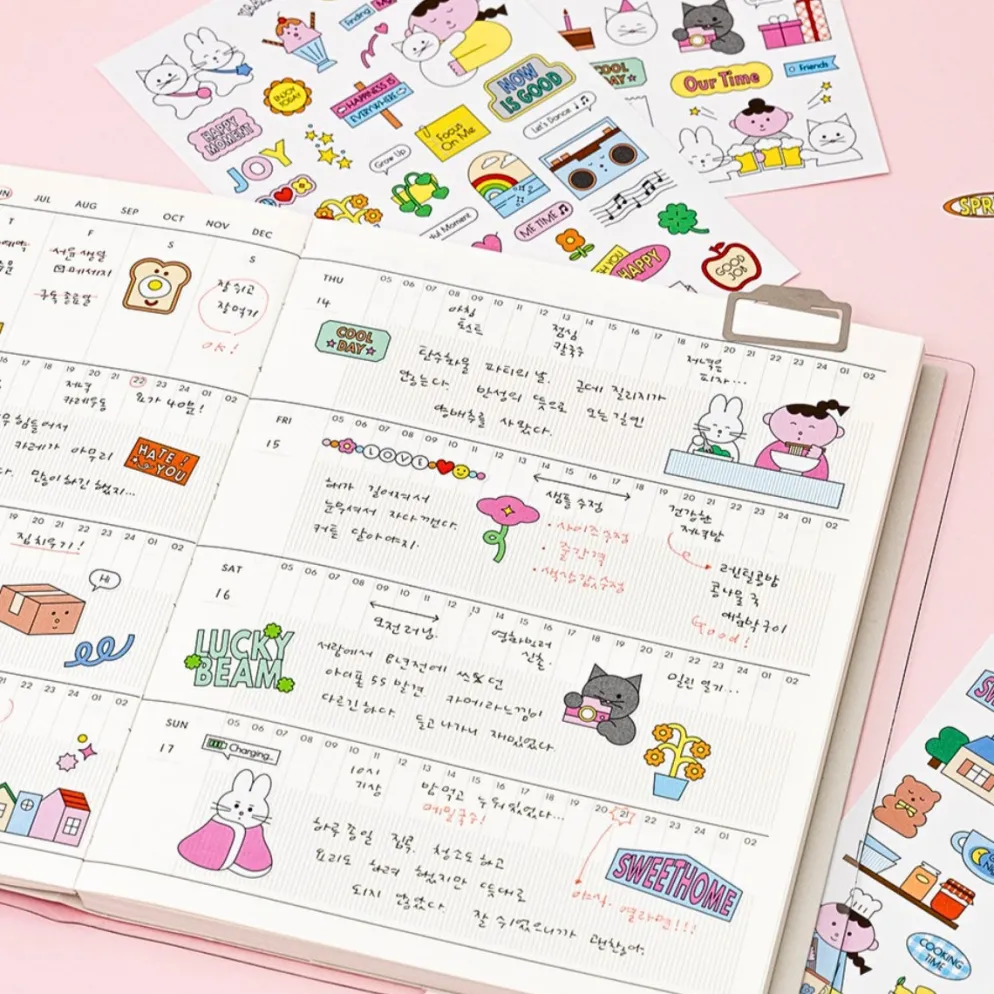 Finding
ENJOY
TODAY
HAPPY
MOMENT
HAPPINESS IS
EVERYWHERE
NOW
IS GOOD
Focus
On Me
Let's Dance
Grow Up
JOY
ME TIME
HAPPY
GOOD
JOB
COOL
DAY
Our Time
Friends
JUL AUG SEP OCT NOV DEC
T F S S
서윤 생일
메세지
잘 쉬고
잘 먹기
OK!
16 17 18 19 20 21 22 23 24 01 02
저녁
카레우동
요가 40분!
카레가 아무리
HATE!
YOU
많이 하긴 했지...
19 20 21 22 23 24 01 02
집 치우기!
Hi
21 22 23 24 01 02
THU 05 06 07 08 09 10 11 12 13 14 15 16 17 18 19 20 21 22 23 24 01 02
14
아침
토스트
점심
칼국수
저녁은
피자...
COOL
DAY
탄수화물 파티의 날. 근데 질리지가
않는다. 반성의 뜻으로 오는 길엔
양배추를 사왔다.
FRI 05 06 07 08 09 10 11 12 13 14 15 16 17 18 19 20 21 22 23 24 01 02
15
LOVE
샘플 수정
· 사이즈 수정
· 줄간격
· 색상값 수정
건강한
저녁밥
렌틸콩밥
콩나물국
애호박구이
Good!
해가 길어져서
눈부셔서 자다 깬다.
커튼 달아야지.
SAT 05 06 07 08 09 10 11 12 13 14 15 16 17 18 19 20 21 22 23 24 01 02
16
오전 러닝.
영화 빌려
일린 열기...
LUCKY
BEAM
서랍에서 8년전에 쓰던
아이폰 5S 발견 카메라 느낌이
다르긴하다. 들고 나가서 재밌었다.
SUN 05 06 07 08 09 10 11 12 13 14 15 16 17 18 19 20 21 22 23 24 01 02
17
Charging...
10시
기상
밥 먹고 누워있었다...
메밀국수!
하루 종일 집콕. 청소도 하고
요리도 하려 했지만 뜻대로
되지 않았다. 잘 쉬었으니까 괜찮아.
SWEETHOME
야식. 열라면!!!
COOKING
TIME